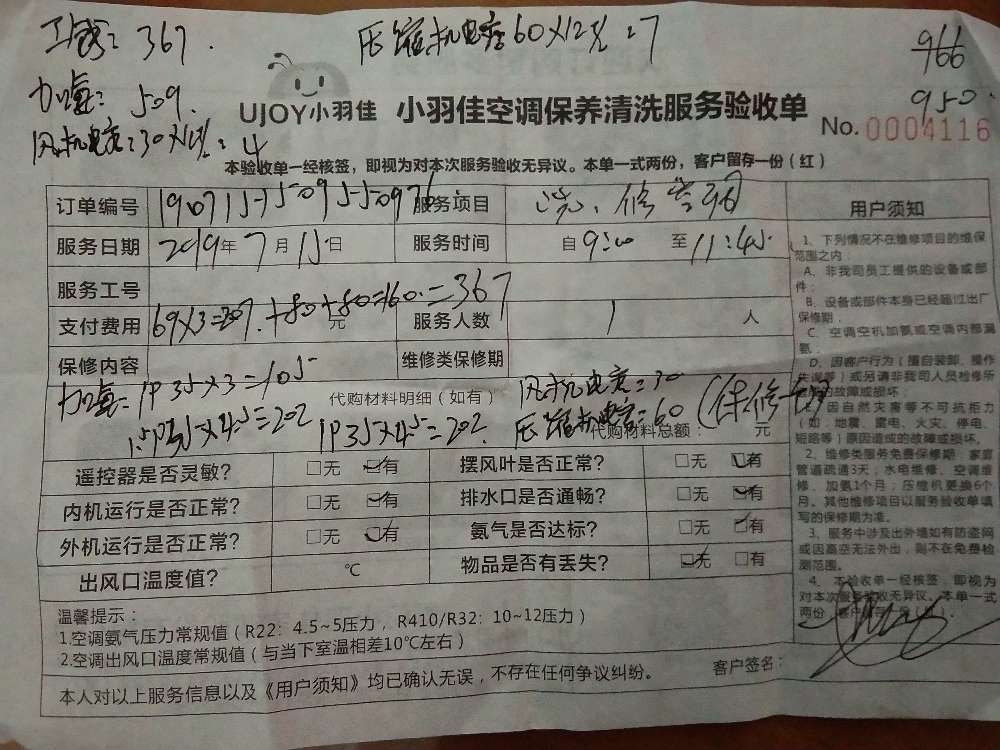 工钱：367.
压缩机电容60×12元=7
966
加氨：509.
950.
UJOY小羽佳 小羽佳空调保养清洗服务验收单
No. 0004116
本验收单一经核签，即视为对本次服务验收无异议。本单一式两份，客户留存一份（红）
订单编号
服务项目
服务日期 2019年7月15日 服务时间 自9:00 至11:45
服务工号
支付费用 69×3=207.+80+80=160.=367 元 服务人数 1 人
保修内容 维修类保修期
加氨：1P 35×3=105 代购材料明细（如有） 风机电容：30
1P 35×4.5=202. 压缩机电容：60 代购材料总额： 元
遥控器是否灵敏？ □无 □有 摆风叶是否正常？ □无 □有
内机运行是否正常？ □无 □有 排水口是否通畅？ □无 □有
外机运行是否正常？ □无 □有 氨气是否达标？ □无 □有
出风口温度值？ ℃ 物品是否有丢失？ □无 □有
温馨提示：
1.空调氨气压力常规值（R22：4.5~5压力，R410/R32：10~12压力）
2.空调出风口温度常规值（与当下室温相差10℃左右）
客户签名：
本人对以上服务信息以及《用户须知》均已确认无误，不存在任何争议纠纷。
用户须知
1、下列情况不在维修项目的维保
范围之内：
A、非我司员工提供的设备或部
件；
B、设备或部件本身已经超过出厂
保修期；
C、空调空机加氨或空调内部漏
氨；
D、因客户行为（擅自装卸、操作
）或另请非我司人员检修所
的故障或损坏；
因自然灾害等不可抗拒力
（如：地震、雷电、火灾、停电、
短路等）原因造成的故障或损坏。
2、维修类服务免费保修期：家庭
管道疏通3天；水电维修、空调维
修、加氨1个月；压缩机更换6个
月、其他维修项目以服务验收单填
写的保修期为准。
3、服务中涉及出外墙如有防盗网
或因高空无法外出，则不在免费检
测范围。
4、本验收单一经核签，即视为
对本次服务验收无异议。本单一式
两份，客户留存一份（红）。